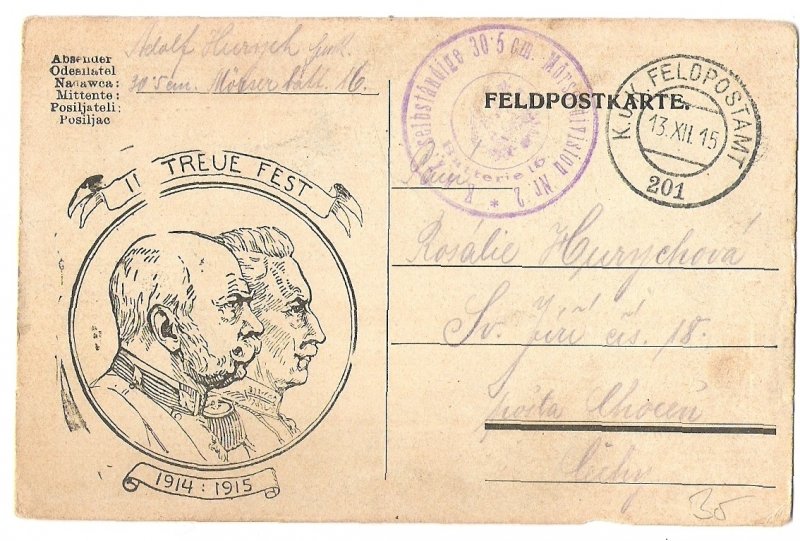 Absender
Odesílatel
Nadawca:
Mittente:
Posiljateli:
Posiljac
Adolf Hurych
30·5 cm. Mörser batt. 16.
K.u.K. selbständige 30·5 cm. Mörserdivision Nr 2. *
Batterie 16
FELDPOSTKARTE.
K.u.K. FELDPOSTAMT
13. XII. 15
201
II TREUE FEST
1914 : 1915
Rosálie Hurychová
Sv. Jiří čís. 18.
pošta Choceň
Čechy
35